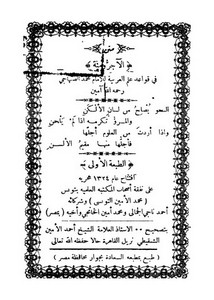 متن
الآجرومية
في قواعد علم العربية للإمام محمد الصنهاجي
رحمه الله آمين
النحو يصلح من لسان الألكن
والمرء تكرمه اذا لم يلحن
واذا أردت من العلوم أجلها
فأجلها منها مقيم الألسن
الطبعة الأولى
افتتاح عام ١٣٢٤ هجرية
على نفقة أصحاب المكتبة العلمية بتونس
(محمد الأمين التونسي) وشركائه
أحمد ناجي الجمالي ومحمد أمين الخانجي وأخيه (بمصر)
بتصحيح الاستاذ العلامة الشيخ أحمد الأمين
الشنقيطي نزيل القاهرة حالا حفظه الله تعالى
(طبع بمطبعة السعادة بجوار محافظة مصر)